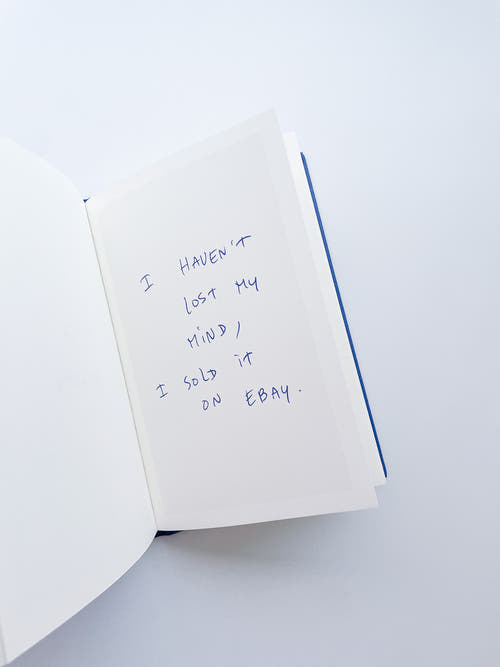 I HAVEN'T
LOST MY
MiND,
I SOLD iT
ON EBAY.